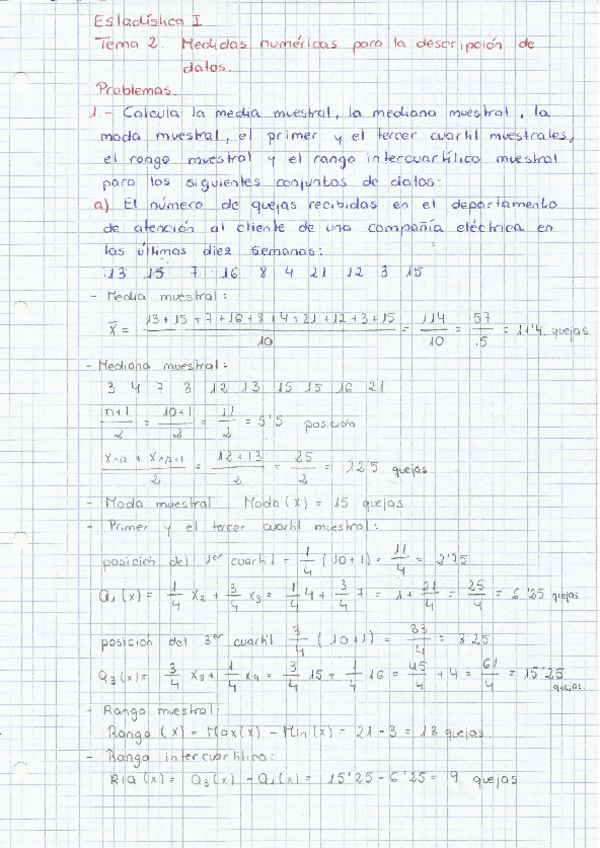 Estadística I
Tema 2. Medidas numéricas para la descripción de
datos.
Problemas
1.- Calcula la media muestral, la mediana muestral, la
moda muestral, el primer y el tercer cuartil muestrales,
el rango muestral y el rango intercuartílico muestral
para los siguientes conjuntos de datos:
a) El número de quejas recibidas en el departamento
de atención al cliente de una compañía eléctrica en
las últimas diez semanas:
13 15 7 16 8 4 21 12 3 15
- Media muestral:
x̄ = (13+15+7+16+8+4+21+12+3+15)/10 = 114/10 = 57/5 = 11'4 quejas
- Mediana muestral:
3 4 7 8 12 13 15 15 16 21
(n+1)/2 = (10+1)/2 = 11/2 = 5'5 posición
(x n/2 + x n/2+1)/2 = (12+13)/2 = 25/2 = 12'5 quejas
- Moda muestral Moda(X) = 15 quejas
- Primer y el tercer cuartil muestral:
posición del 1er cuartil = 1/4 (10+1) = 11/4 = 2'75
Q1(x) = 1/4 x2 + 3/4 x3 = 1/4 4 + 3/4 7 = 1 + 21/4 = 25/4 = 6'25 quejas
posición del 3er cuartil 3/4 (10+1) = 33/4 = 8'25
Q3(x) = 3/4 x8 + 1/4 x9 = 3/4 15 + 1/4 16 = 45/4 + 4 = 61/4 = 15'25 quejas
- Rango muestral:
Rango (x) = Max(x) - Min(x) = 21 - 3 = 18 quejas
- Rango intercuartílico:
RIQ (x) = Q3(x) - Q1(x) = 15'25 - 6'25 = 9 quejas